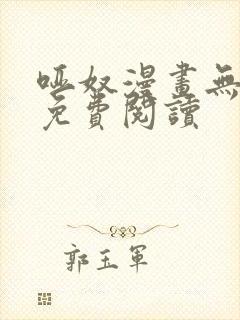 啞奴漫畫無
免費閱讀
郭玉軍